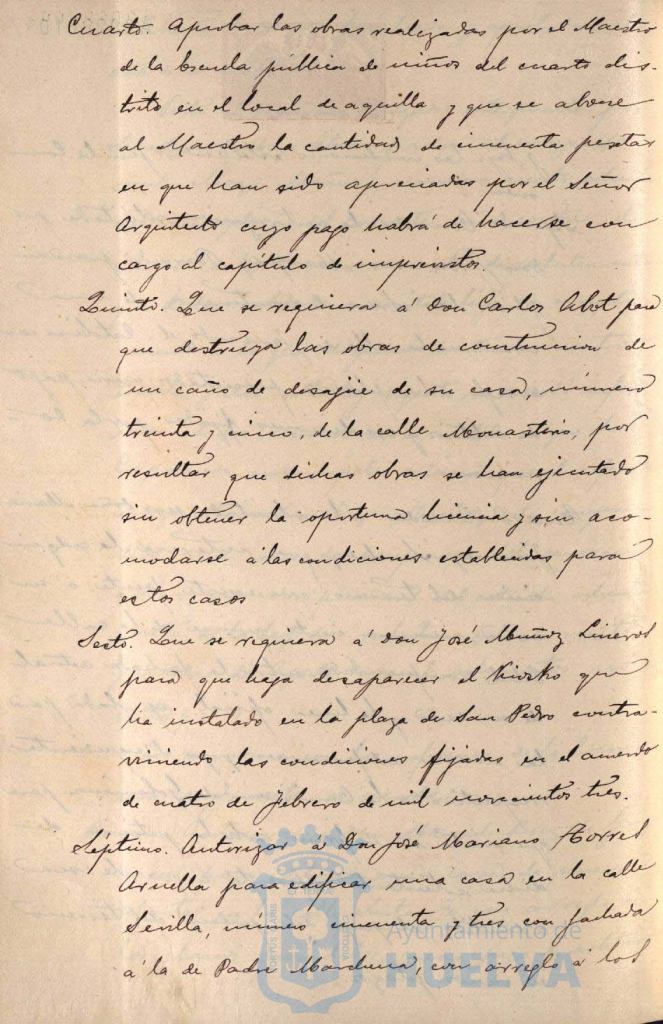 Cuarto. Aprobar las obras realizadas por el Maestro
de la Escuela pública de niños del cuarto dis-
trito en el local de aquella y que se abone
al Maestro la cantidad de cincuenta pesetas
en que han sido apreciadas por el Señor
Arquitecto cuyo pago habrá de hacerse con
cargo al capítulo de imprevistos.
Quinto. Que se requiera á Don Carlos Albot para
que destruya las obras de construccion de
un caño de desagüe de su casa, número
treinta y cinco, de la calle Monasterio, por
resultar que dichas obras se han ejecutado
sin obtener la oportuna licencia y sin aco-
modarse á las condiciones establecidas para
estos casos
Sesto. Que se requiera á Don José Muñoz Lineros
para que haga desaparecer el Kiosko que
ha instalado en la plaza de San Pedro contra-
viniendo las condiciones fijadas en el acuerdo
de cuatro de Febrero de mil novecientos tres.
Séptimo. Autorizar á Don José Mariano Torres
para edificar una casa en la calle
Sevilla, número cincuenta y tres con fachada
á la de Padre Marchena, con arreglo á los
Ayuntamiento de
HUELVA